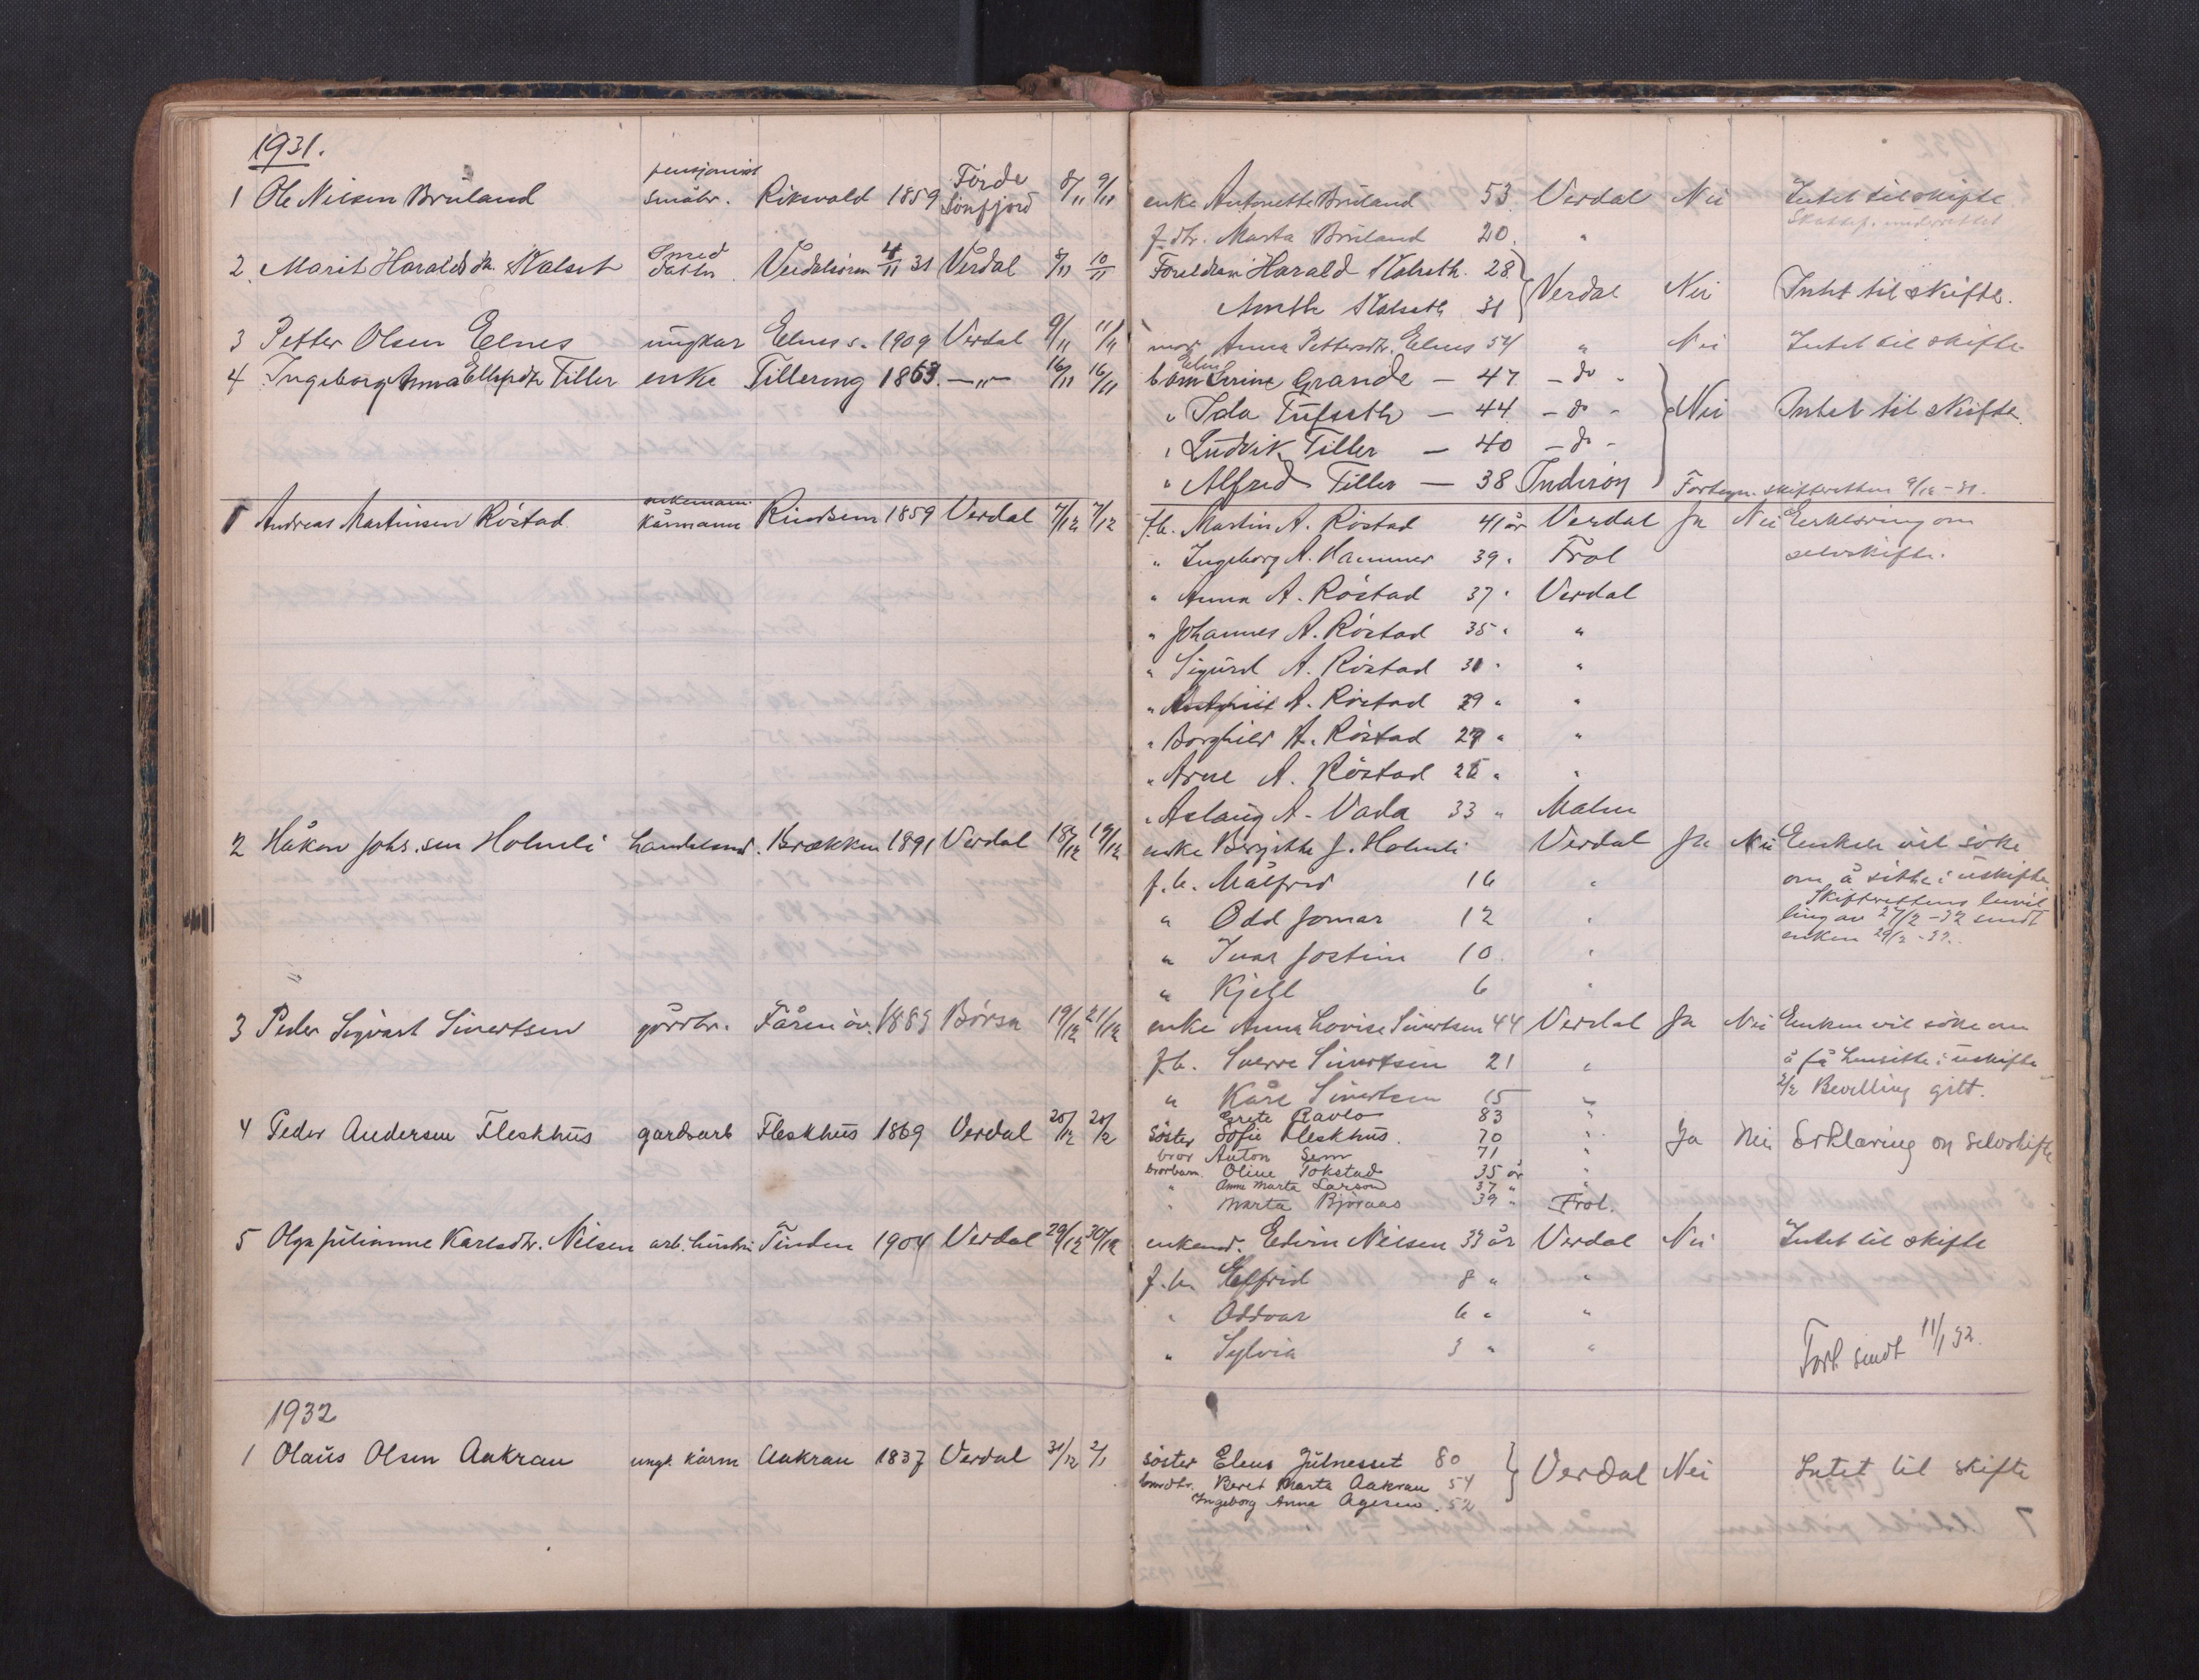 1931.
1 Ole Nilsen Brüland pensjonist småbr. Riksvold 1859 Förde Sönfjord 8/11 9/11 enke Antonette Brüland 53 Verdal Nei Intet til skifte
f. dtr. Marta Brüland 20. "
2. Marit Haralds dtr. Skalset Smed datter Verdalsören 4/11 31 Verdal 8/11 10/11 Foreldre: Harald Skalseth 28 Verdal Nei Intet til skifte.
Skalseth 31
3 Petter Olsen Elnes ungkar Elnes v. 1909 Verdal 9/11 11/11 mor Anna Pettersdtr. Elnes 54 " Nei Intet til skifte
4 Ingeborg Anna Ellefsdtr Tiller enke Tillering 1863. —"— 16/11 16/11 barn Elen Serine Grande — 47 — do -
" Ida Tufseth — 44 — do - Nei Intet til skifte.
" Ludvik Tiller — 40 — do -
" Alfred Tiller — 38 Inderöy Fortegn. skifteretten 9/12 - 31.
1 Andreas Martinsen Röstad enkemann kårmann Rindsem 1859 Verdal 7/12 7/12 f.b. Martin A. Röstad 41 år Verdal Ja Nei Erklæring om
" Ingeborg A. Hammer 39 " Frol selvskifte.
" Anna A. Röstad 37 " Verdal
" Johannes A. Röstad 35 " "
" Sigurd A. Röstad 31 " "
" A. Röstad 29 " "
" Borghild A. Röstad 27 " "
" Arne A. Röstad 25 " "
" Aslaug A. Vada 33 " Malm
2 Håkon Johs.sen Holmli handelsmd. Brækken 1891 Verdal 18/12 19/12 enke Bergitte J. Holmli Verdal Ja Nei Enken vil söke
f.b. Målfrid 16 " om å sitte i uskifte
" Odd Jomar 12 " Skifterettens bevilling av 27/2 - 32 sendt
" Ivar Jostein 10 " enken 29/2 - 32.
" Kjell 6 "
3 Peder Sigvart Sivertsen gårdbr. Fåren öv. 1889 Börsa 19/12 21/12 enke Anna Lovise Sivertsen 44 Verdal Ja Nei Enken vil söke om
f.b. Sverre Sivertsen 21 " å få hensitte i uskifte
" Kåre Sivertsen 15 " 2/2 Bevilling gitt.
Grete Ravlo 83 "
4 Peder Andersen Fleskhus gårdsarb Fleskhus 1869 Verdal 20/12 20/12 söster Sofie Fleskhus. 70 " Ja Nei Erklæring om selvskifte
bror Anton Sem 71 "
brorbarn Oline Tokstad 35 år "
" Anne Marta Larsen 37 " "
" Marta Björaas 39 " Frol.
5 Olga Julianne Karlsdtr. Nilsen arb. hustru Tinden 1904 Verdal 29/12 30/12 enkemd. Edvin Nilsen 33 år Verdal Nei Intet til skifte
f.b. Elfrid 8 " "
" Oddvar 6 " "
" Sylvia 3 " " Fort. sendt 11/1 32.
1932
1 Olaus Olsen Aakran ungk. kårm Aakran 1837 Verdal 31/12 2/1 söster Elens Julnesset 80 Verdal Nei Intet til skifte
Beret Marta Aakran 54
Ingeborg Anna 52